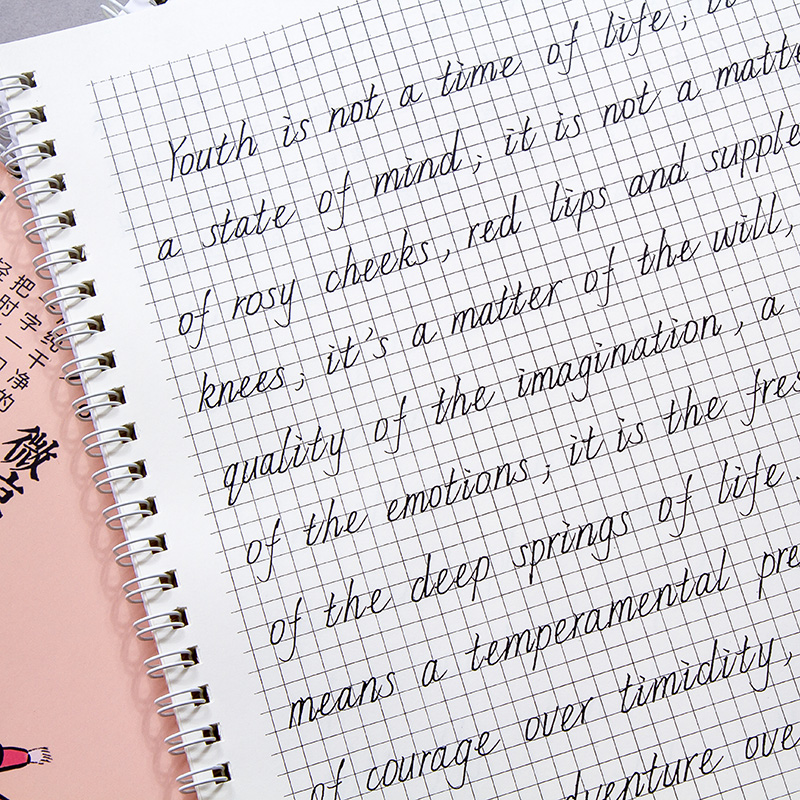 Youth is not a time of life; it
a state of mind; it is not a matte
of rosy cheeks, red lips and supple
knees; it's a matter of the will,
quality of the imagination, a
of the emotions; it is the fres
of the deep springs of life.
means a temperamental pre
of courage over timidity,
dventure ove
把
时字纯
一干
净
的
微